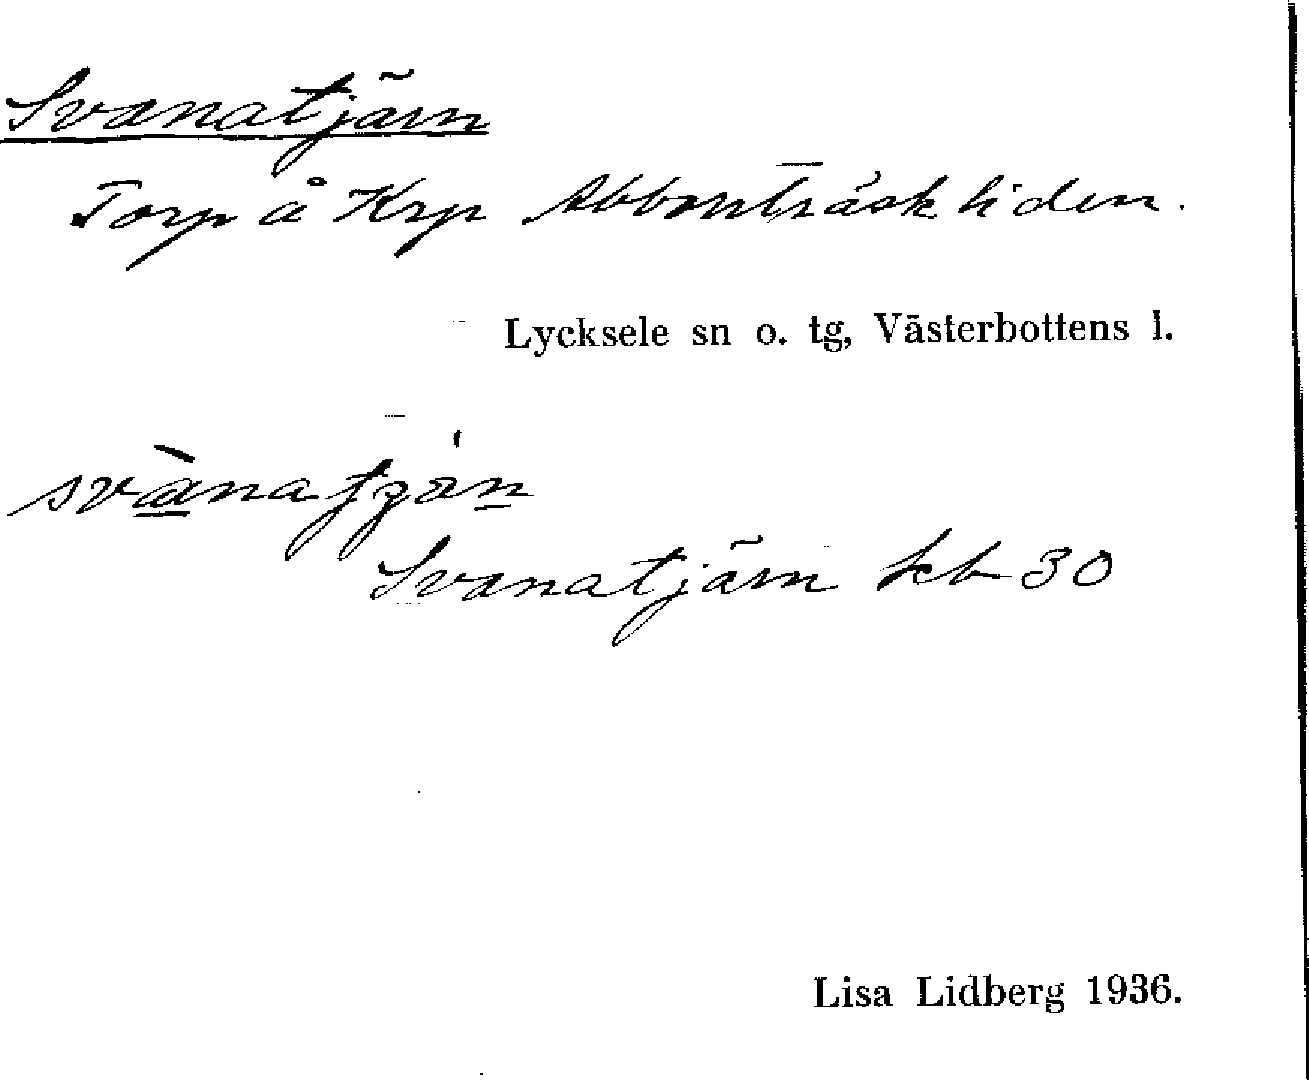 Svanatjärn
Torp å Krp Abborrträskliden.
Lycksele sn o. tg, Västerbottens l.
Svanatjärn kb 30
Lisa Lidberg 1936.